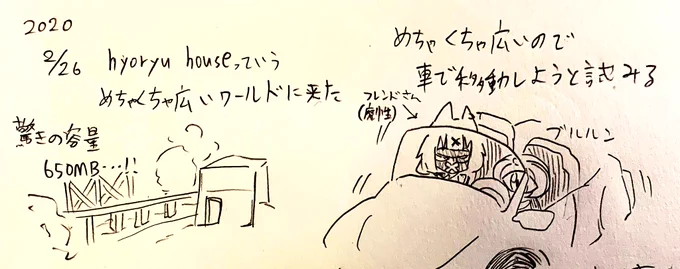 2020
2/26 hyoryu houseっていう
めちゃくちゃ広いワールドに来た
驚きの容量
650MB…!!
めちゃくちゃ広いので
車で移動しようと試みる
フレンドさん
ブルルン